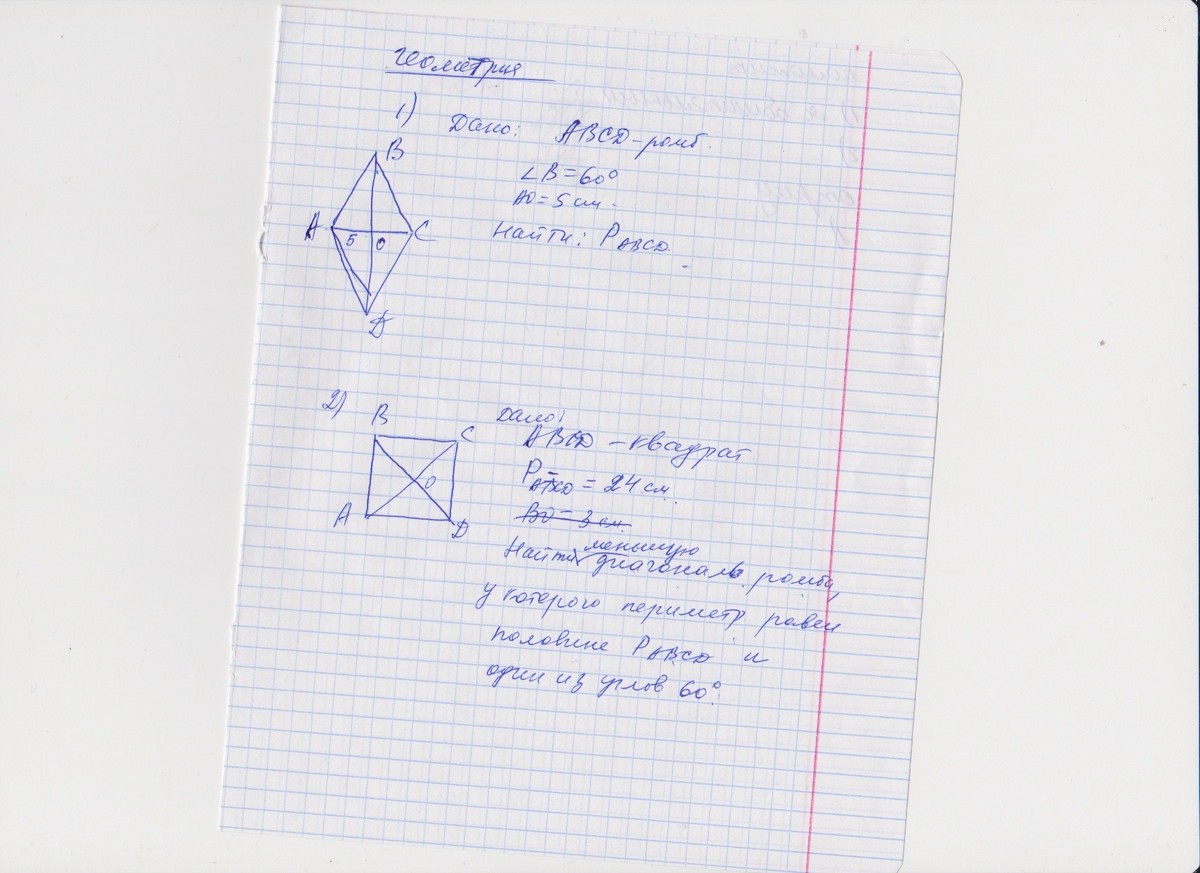 Геометрия
1)
Дано: ABCD – ромб.
∠B = 60°
AO = 5 см.
Найти: P ABCD.
B
A 5 O C
D
2)
Дано:
ABCD – квадрат
P ABCD = 24 см.
BO = 3 см.
Найти меньшую диагональ ромба,
у которого периметр равен
половине P ABCD и
один из углов 60°.
B C
O
A D